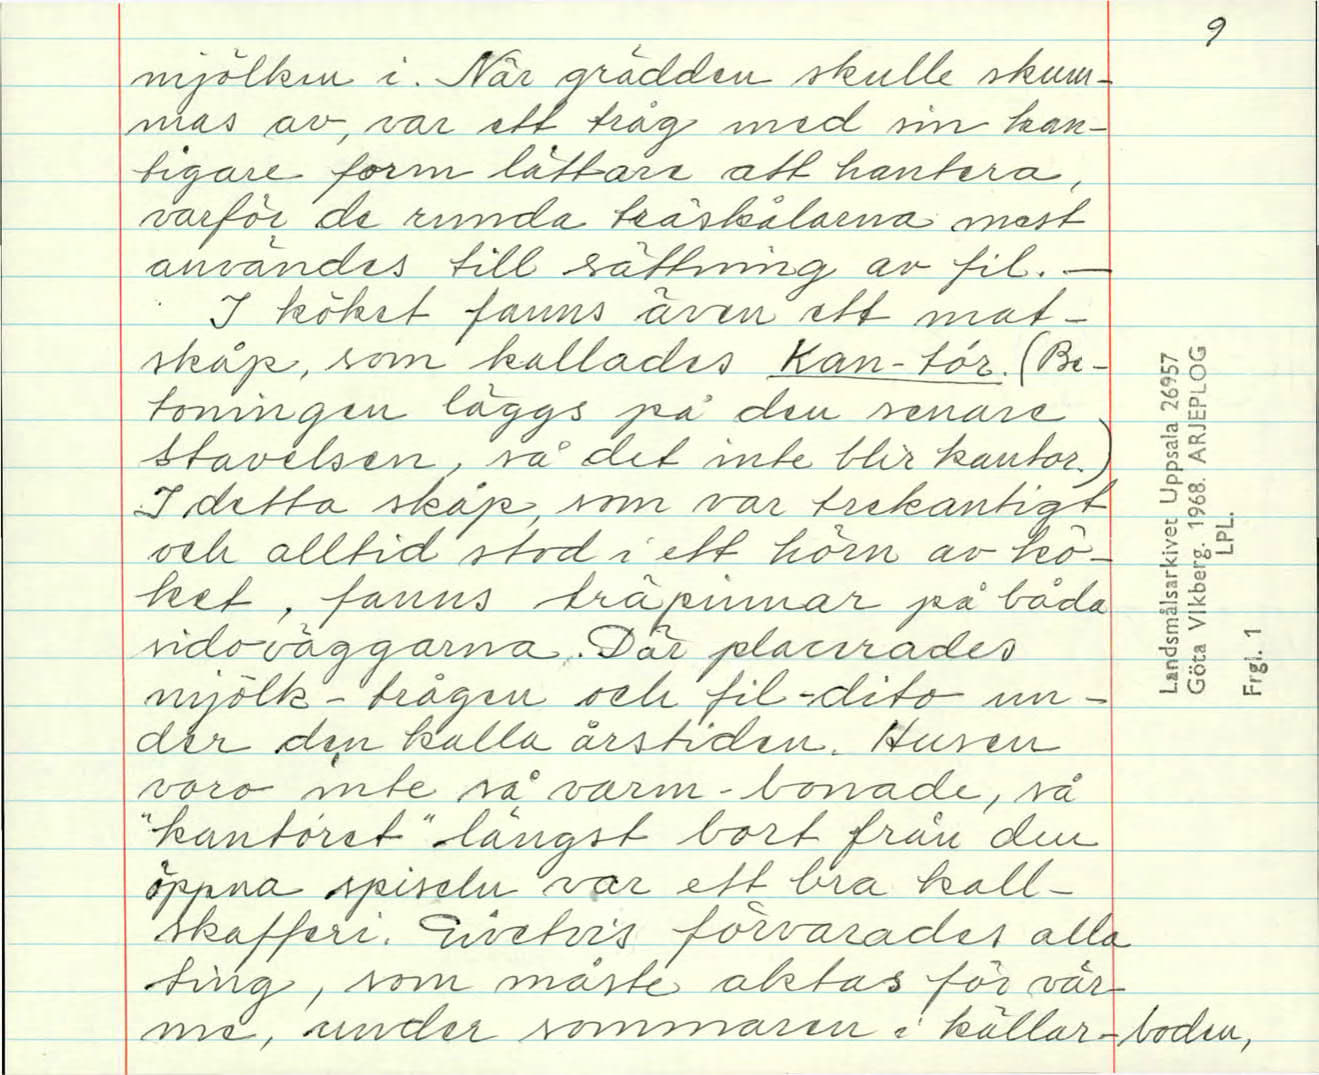 9
mjölken i. När grädden skulle skum-
mas av, var ett tråg med sin kan-
tigare form lättare att hantera,
varför de runda träskålarna mest
användes till sättning av fil. —
I köket fanns även ett mat-
skåp, som kallades Kan-tór. (Be-
toningen läggs på den senare
stavelsen, så det inte blir kantor.)
I detta skåp, som var trekantigt
och alltid stod i ett hörn av kö-
ket, fanns träpinnar på båda
sidoväggarna. Där placerades
mjölk-trågen och fil-dito un-
der den kalla årstiden. Husen
voro inte så varm-bonade, så
"kantóret" längst bort från den
öppna spiseln var ett bra kall-
skafferi. Givetvis förvarades alla
ting, som måste aktas för vär-
me, under sommaren i källar-boden,
Landsmålsarkivet Uppsala 26957
Göta Vikberg. 1968. ARJEPLOG
LPL.
Frgl. 1